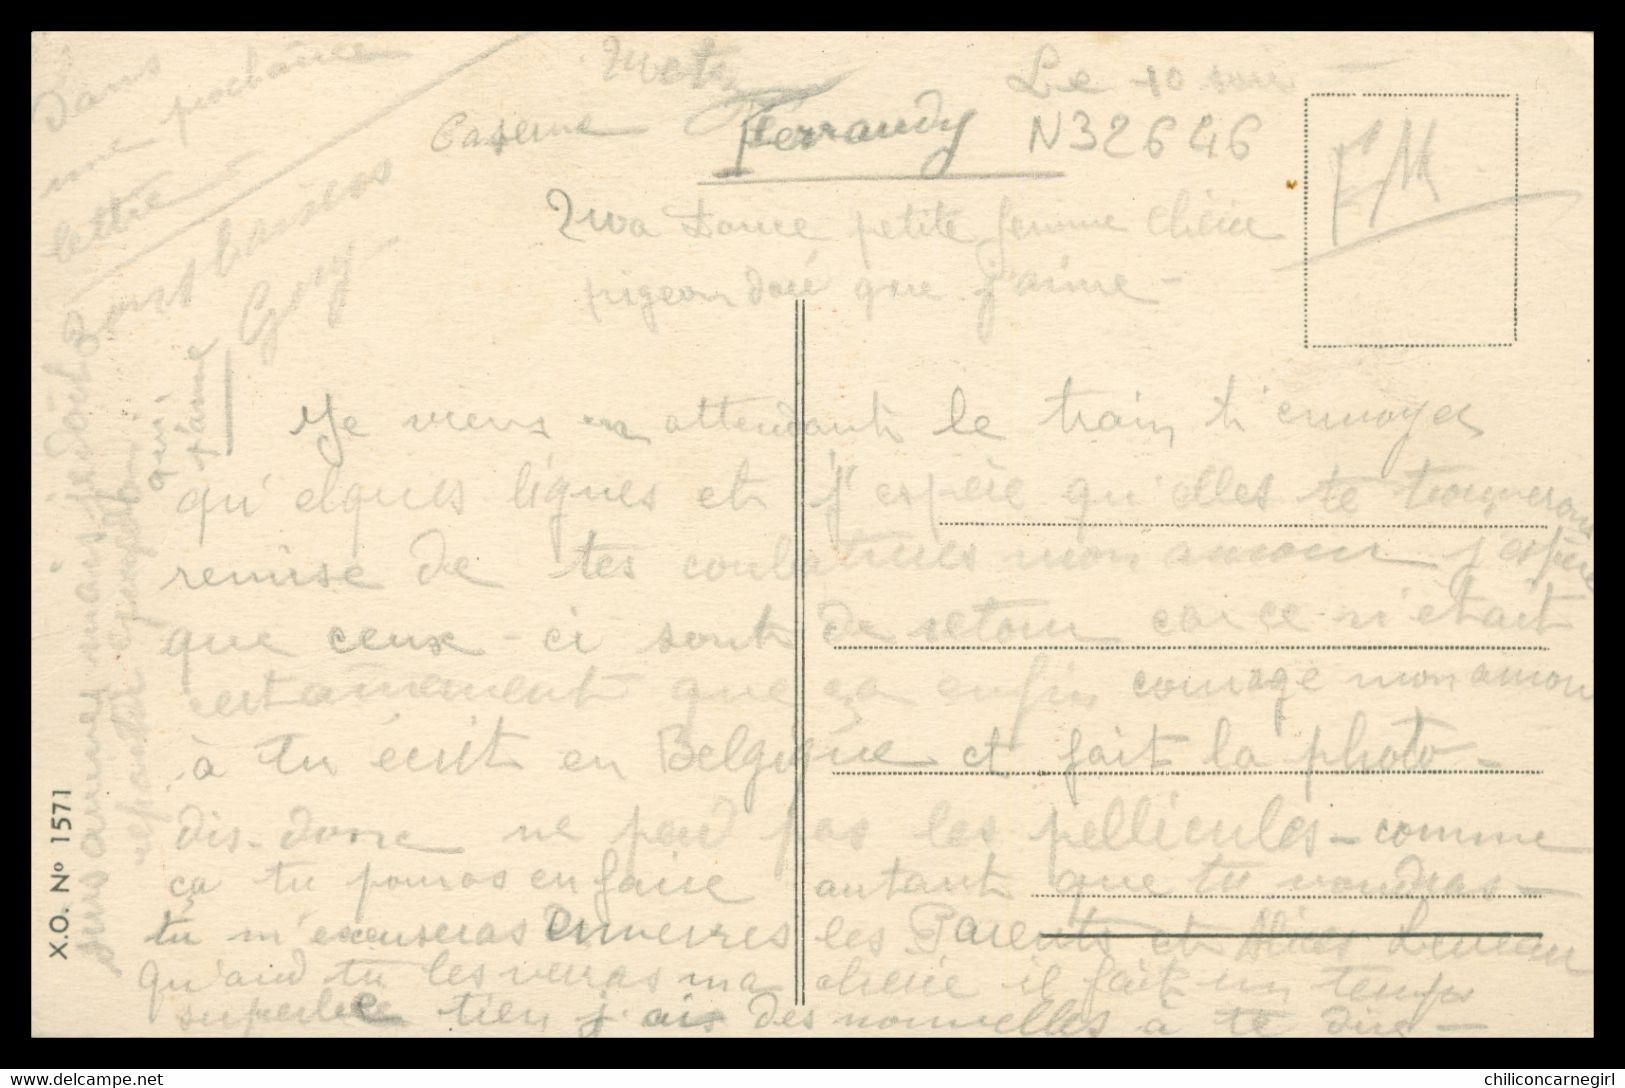 Le 10
Caserne Ferrandy N32646
FM
petite femme chérie
pigeon doré que j'aime -
Je viens en attendant le train t'envoyer
qu'elques lignes et j'espère qu'elles te trouverons
remise de tes mon amour j'espère
que ceux-ci sont de retour car ce n'était
certainement que ça enfin courage mon amour
à tu écrit en Belgique et fait la photo -
dis-donc ne perd pas les pellicules - comme
ça tu pouras en faire autant que tu voudras -
tu m'excuseras enverres les Parents et
qu'and tu les verras ma chérie il fait un temps
superbe tien j'ais des nouvelles à te dire -
dans
une prochaine
lettre -
baisers
qui
t'aime
X.O. Nº 1571
chiliconcarnegirl